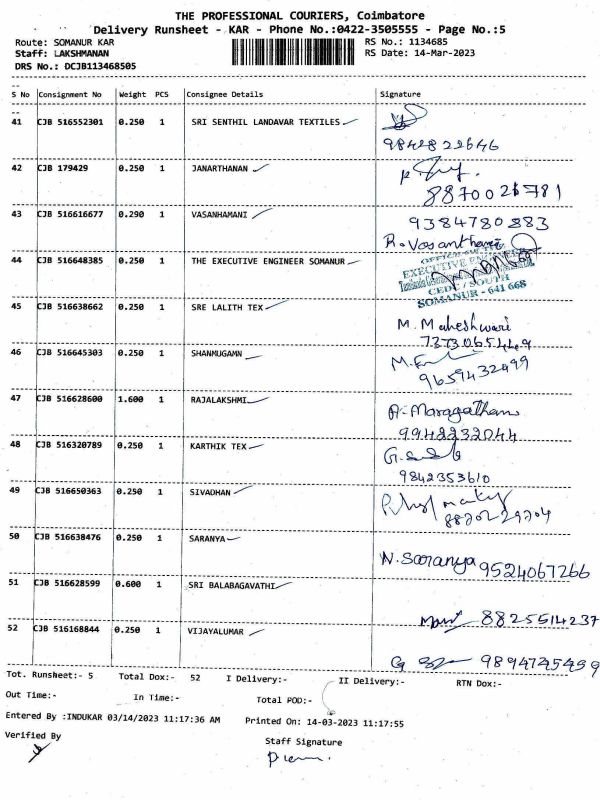 THE PROFESSIONAL COURIERS, Coimbatore
Delivery Runsheet - KAR - Phone No.:0422-3505555 - Page No.:5
Route: SOMANUR KAR
RS No.: 1134685
Staff: LAKSHMANAN
RS Date: 14-Mar-2023
DRS No.: DCJB113468505
S No Consignment No Weight PCS Consignee Details Signature
41 CJB 516552301 0.250 1 SRI SENTHIL LANDAVAR TEXTILES
9842822646
42 CJB 179429 0.250 1 JANARTHANAN
43 CJB 516616677 0.290 1 VASANHAMANI 9384780883
R. Vasanthamani
44 CJB 516648385 0.250 1 THE EXECUTIVE ENGINEER SOMANUR
EXECUTIVE ENGINEER
/ SOUTH
SOMANUR - 641 668
45 CJB 516638662 0.250 1 SRE LALITH TEX
M. Maheshwari
46 CJB 516645303 0.250 1 SHANMUGAMN
9659432499
47 CJB 516628600 1.600 1 RAJALAKSHMI
A. Maragatham
9942232044
48 CJB 516320789 0.250 1 KARTHIK TEX
9842353610
49 CJB 516650363 0.250 1 SIVADHAN
50 CJB 516638476 0.250 1 SARANYA
N. Saranya 9524067266
51 CJB 516628599 0.600 1 SRI BALABAGAVATHI
8825514237
52 CJB 516168844 0.250 1 VIJAYALUMAR
Tot. Runsheet:- 5 Total Dox:- 52 I Delivery:- II Delivery:- RTN Dox:-
Out Time:- In Time:- Total POD:-
Entered By :INDUKAR 03/14/2023 11:17:36 AM Printed On: 14-03-2023 11:17:55
Verified By
Staff Signature